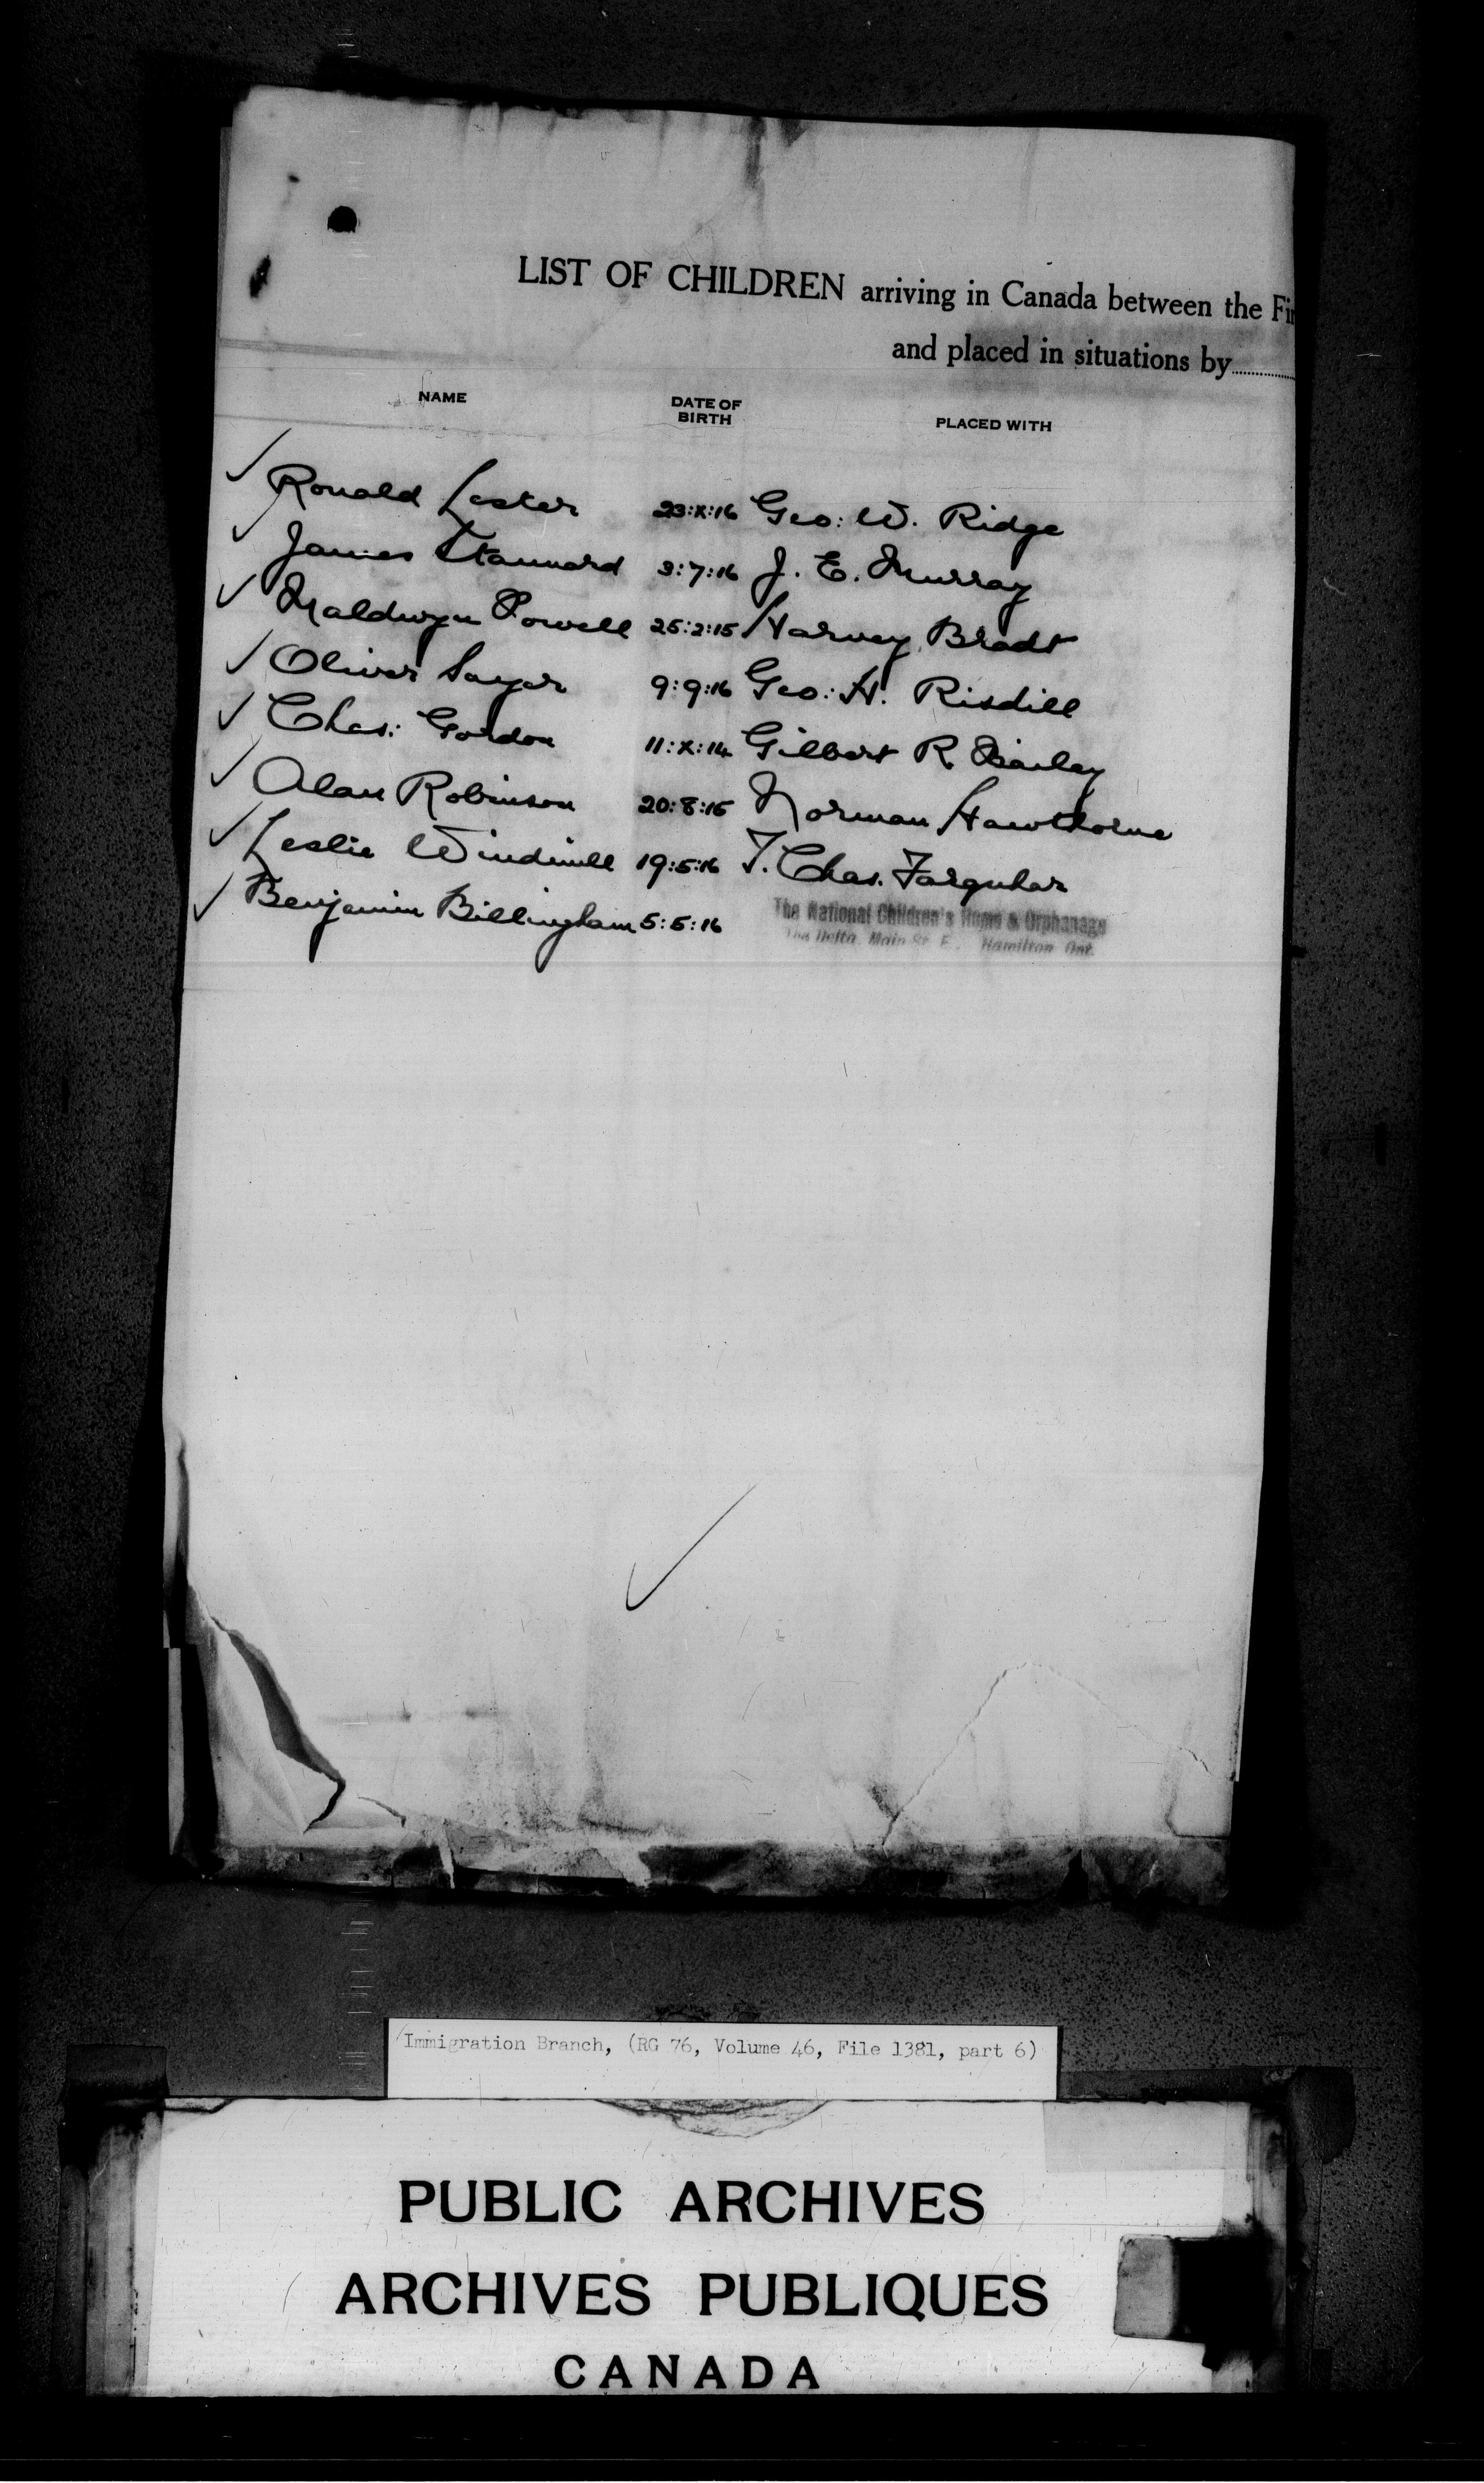 LIST OF CHILDREN arriving in Canada between the Fi
and placed in situations by
NAME DATE OF BIRTH PLACED WITH
Ronald Lester 23:X:16 Geo: W. Ridge
James Stannard 3:7:16 J. E. Murray
Maldwyn Powell 25:2:15 Harvey Bradt
Oliver Sayer 9:9:16 Geo: H. Risdill
Chas: Gordon 11:X:14 Gilbert R. Bailey
Alan Robinson 20:8:15 Norman Hawthorne
Leslie Windmill 19:5:16 T. Chas. Farquhar
Benjamin Billingham 5:5:16 The National Children's Home & Orphanage
The Delta, Main St. E., Hamilton, Ont.
Immigration Branch, (RG 76, Volume 46, File 1381, part 6)
PUBLIC ARCHIVES
ARCHIVES PUBLIQUES
CANADA